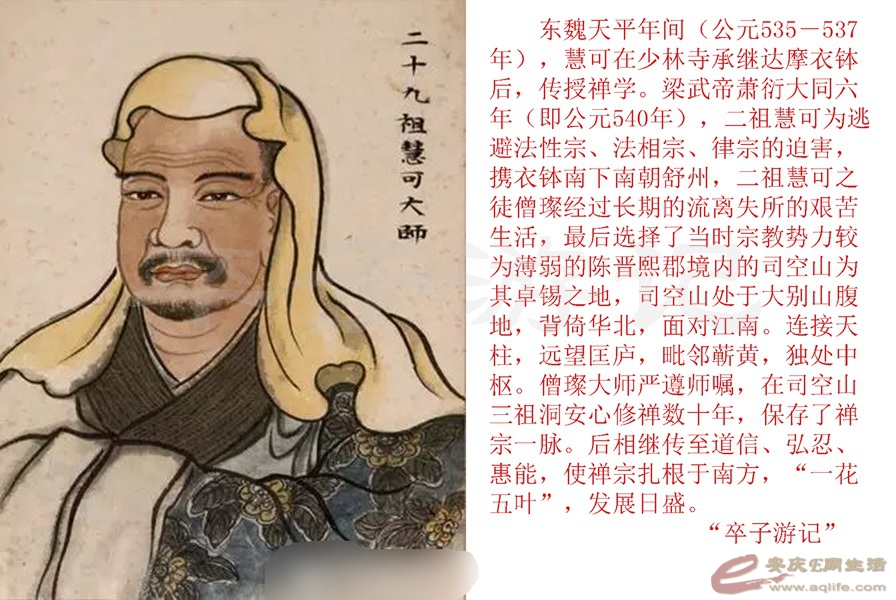 二十九祖慧可大师
东魏天平年间（公元535－537
年），慧可在少林寺承继达摩衣钵
后，传授禅学。梁武帝萧衍大同六
年（即公元540年），二祖慧可为逃
避法性宗、法相宗、律宗的迫害，
携衣钵南下南朝舒州，二祖慧可之
徒僧璨经过长期的流离失所的艰苦
生活，最后选择了当时宗教势力较
为薄弱的陈晋熙郡境内的司空山为
其卓锡之地，司空山处于大别山腹
地，背倚华北，面对江南。连接天
柱，远望匡庐，毗邻蕲黄，独处中
枢。僧璨大师严遵师嘱，在司空山
三祖洞安心修禅数十年，保存了禅
宗一脉。后相继传至道信、弘忍、
惠能，使禅宗扎根于南方，“一花
五叶”，发展日盛。
“卒子游记”
安庆E网生活
www.aqlife.com